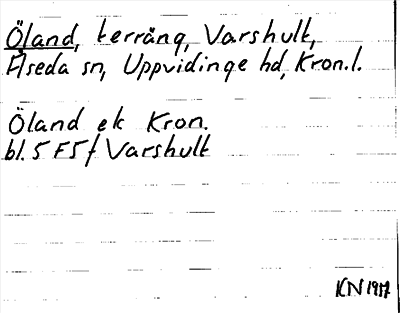 Öland, terräng, Varshult,
Åseda sn, Uppvidinge hd, Kron.l.
Öland ek Kron.
bl. 5 F5f Varshult
KN